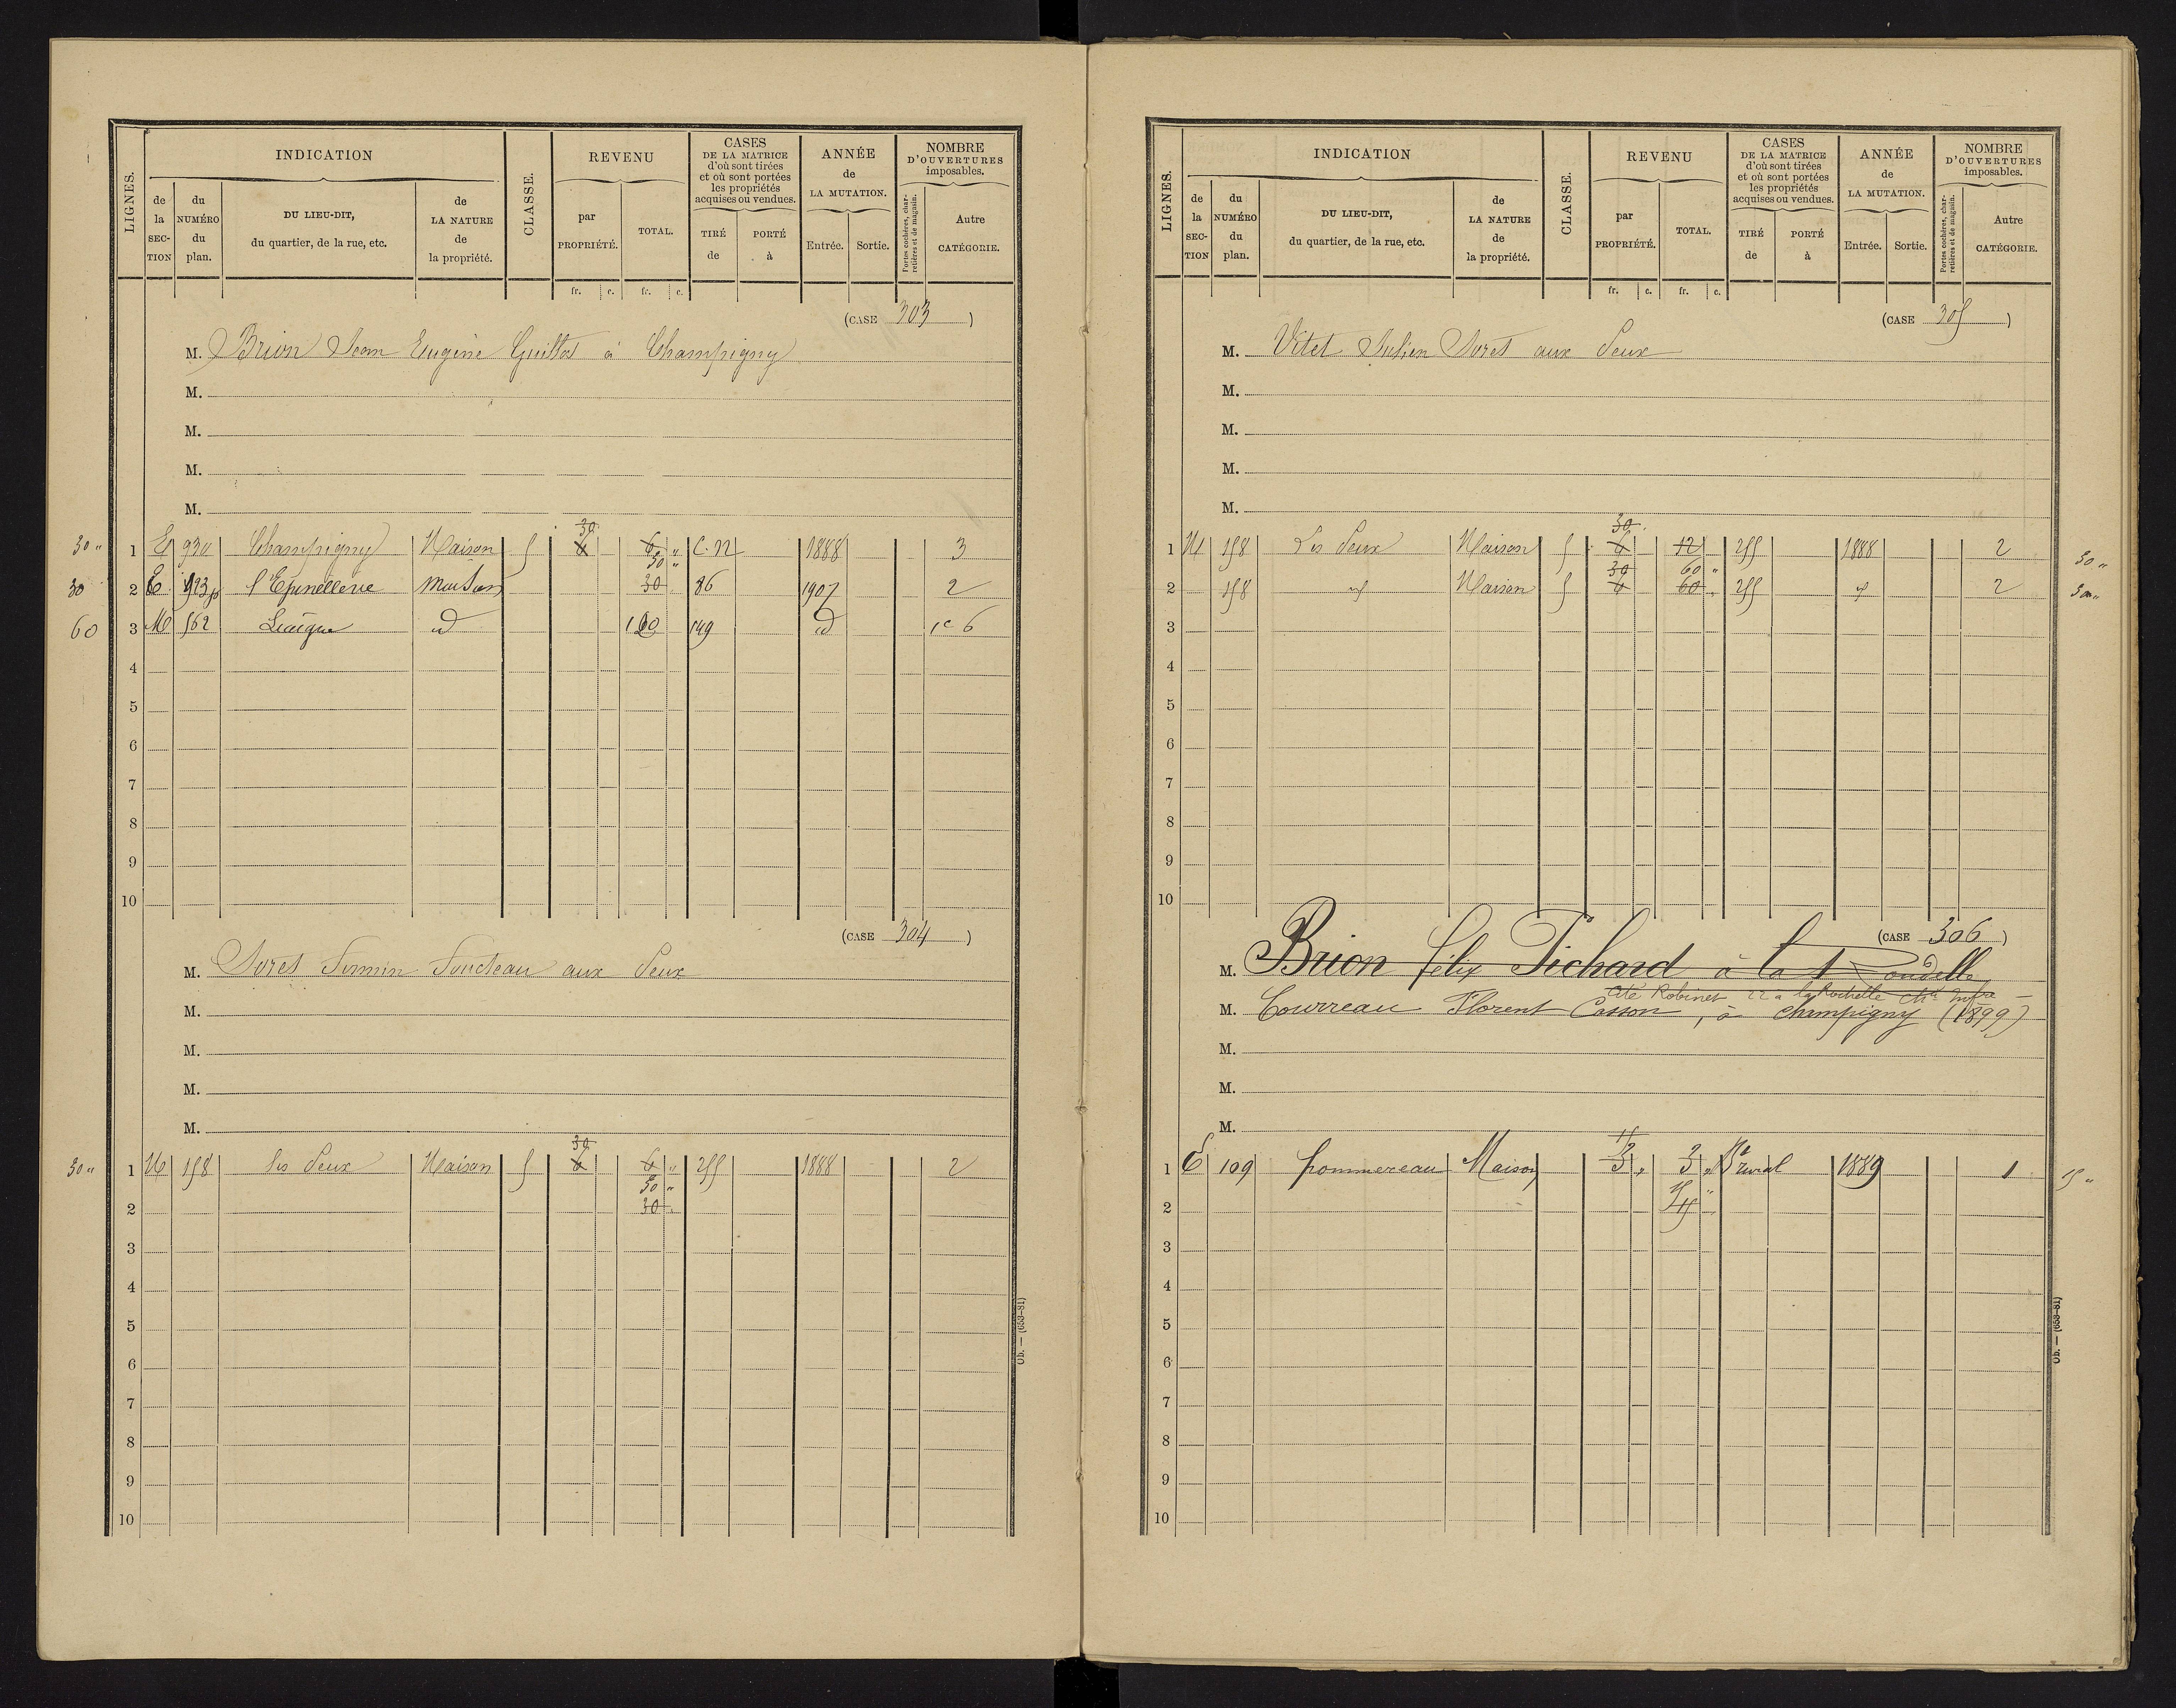 LIGNES.
INDICATION
de la SECTION
du NUMÉRO du plan.
DU LIEU-DIT, du quartier, de la rue, etc.
de LA NATURE de la propriété.
CLASSE.
REVENU
par PROPRIÉTÉ.
TOTAL.
fr. c. fr. c.
CASES DE LA MATRICE d'où sont tirées et où sont portées les propriétés acquises ou vendues.
TIRÉ de
PORTÉ à
ANNÉE de LA MUTATION.
Entrée. Sortie.
NOMBRE D'OUVERTURES imposables.
Portes cochères, charretières et de magasin.
Autre CATÉGORIE.
(CASE 303)
M. Brion Jean Eugène Guillot à Champigny
M.
M.
M.
M.
30
30 " 1 E 930 Champigny Maison 5 6 6 " C. 22 1888 3
30 "
30 2 E 923p l'Epinellerie maison 30 86 1907 2
60 3 M 562 id 149 id 1c 6
4
5
6
7
8
9
10
(CASE 304)
M. Soret Firmin aux Seux
M.
M.
M.
M.
30
30 " 1 M 158 les Seux Maison 5 6 6 " 255 1888 2
30 "
2 30
3
4
5
6
7
8
9
10
Ob. — (653-81)
LIGNES.
INDICATION
de la SECTION
du NUMÉRO du plan.
DU LIEU-DIT, du quartier, de la rue, etc.
de LA NATURE de la propriété.
CLASSE.
REVENU
par PROPRIÉTÉ.
TOTAL.
fr. c. fr. c.
CASES DE LA MATRICE d'où sont tirées et où sont portées les propriétés acquises ou vendues.
TIRÉ de
PORTÉ à
ANNÉE de LA MUTATION.
Entrée. Sortie.
NOMBRE D'OUVERTURES imposables.
Portes cochères, charretières et de magasin.
Autre CATÉGORIE.
(CASE 305)
M. Vitet Julien Soret aux Seux
M.
M.
M.
M.
30
1 M 158 Les Seux Maison 5 6 12 255 1888 2 30 "
30 60 "
2 158 id Maison 5 6 60 255 id 2 30 "
3
4
5
6
7
8
9
10
(CASE 306)
M. Brion félix Pichard à la Rondelle
cité Robinet 22 à la Rochelle
M. Courreau Florent Casson, à Champigny (1899)
M.
M.
M.
15
1 E 109 pommereau Maison 3 " 3 " rural 1889 1 15 "
2 15 "
3
4
5
6
7
8
9
10
Ob. — (653-81)